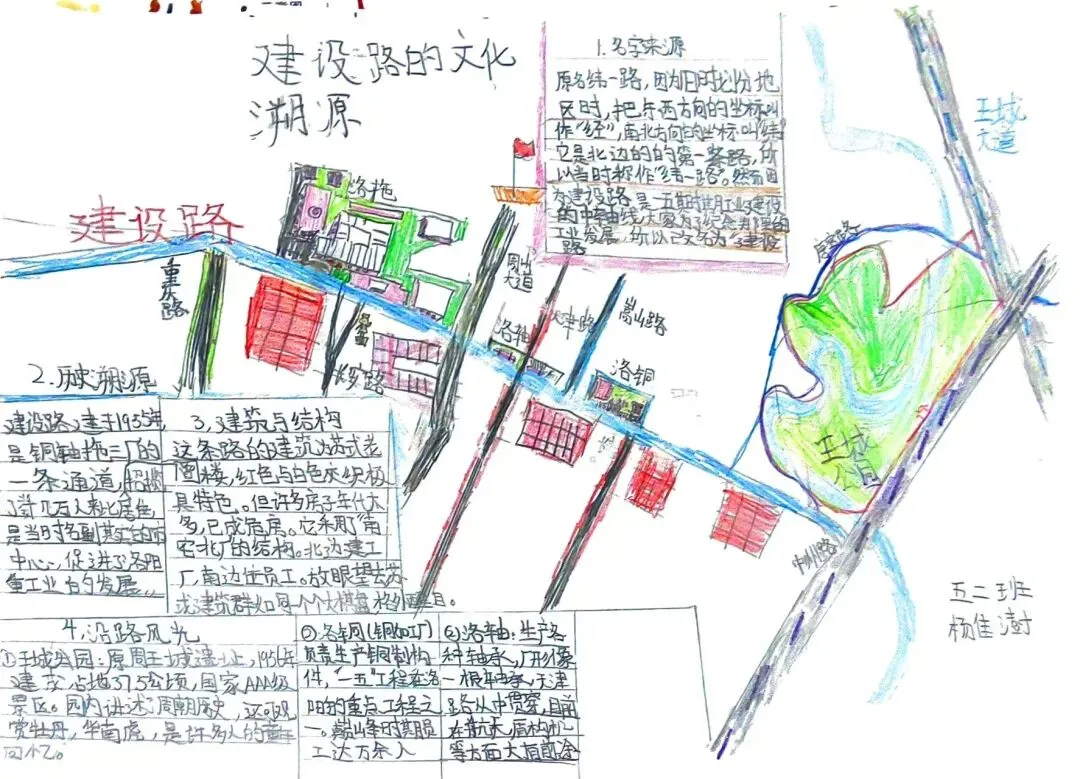 建设路的文化
溯源
1.名字来源
原名纬一路，因为旧时划份地
区时，把东西方向的坐标叫
作“经”，南北方向的坐标叫“纬”
它是北边的的第一条路，所
以当时称作“纬一路”。然而因
为建设路是一五期时期工业建设
的中轴线，大家为了纪念
工业发展，所以改名为“建设
路
王城
大道
建设路
洛拖
重庆路
长安路
周山
大道
洛轴
天津路
嵩山路
洛铜
王城
公园
中州路
2.历史溯源
建设路建于1955年
是铜轴拖三厂的
一条通道，
了许几万人来此居住，
是当时名副其实的市
中心，促进了洛阳
重工业的发展。
3.建筑与结构
这条路的建筑为苏式老
图楼，红色与白色交织极
具特色。但许多房子年代太
多，已成危房。它采用“南
宅北厂”的结构。北边建工
厂，南边住员工。放眼望去苏
式建筑群如同一个个大棋盘格外醒目。
4.沿路风光
①王城公园：原周王城遗址，1956年
建成占地37.5公顷，国家AAA级
景区。园内讲述周朝历史，还可观
赏牡丹，华南虎，是许多人的童年
回忆。
②洛铜(铜加工厂)
负责生产铜制构
件，“一五”工程在洛
阳的重点工程之
一。巅峰时其员
工达万余人
③洛轴：生产各
种轴承，厂形像
一根轴承，天津
路从中贯穿，目前
在航天，盾构机
等方面大有前途
五二班
杨佳澍